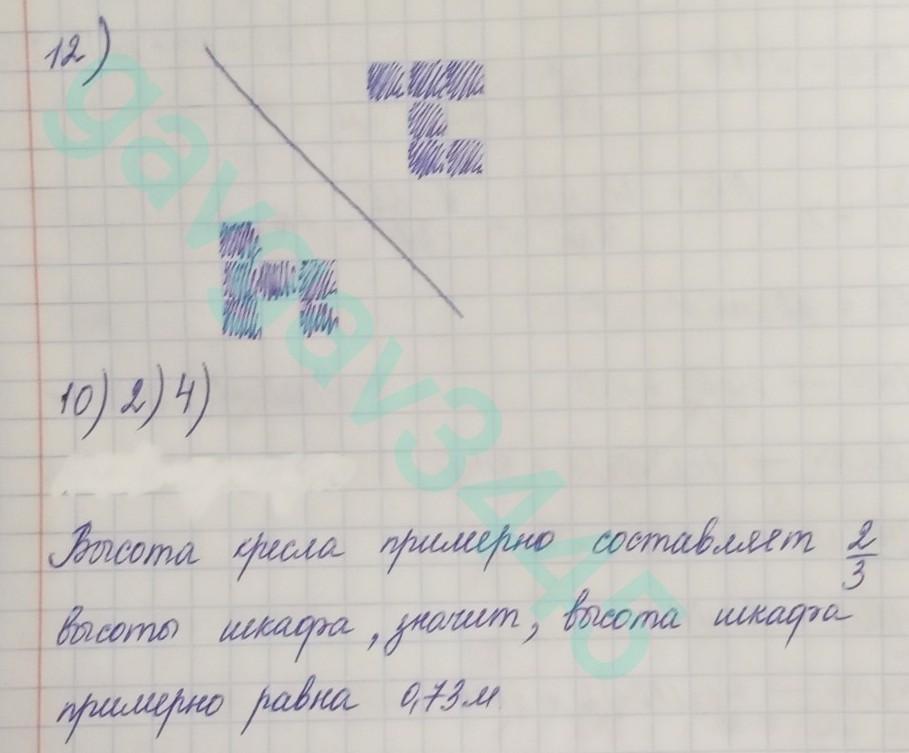 12)
10) 2) 4)
Высота кресла примерно составляет 2/3
высоты шкафа, значит, высота шкафа
примерно равна 0,73 м
gavgav3445